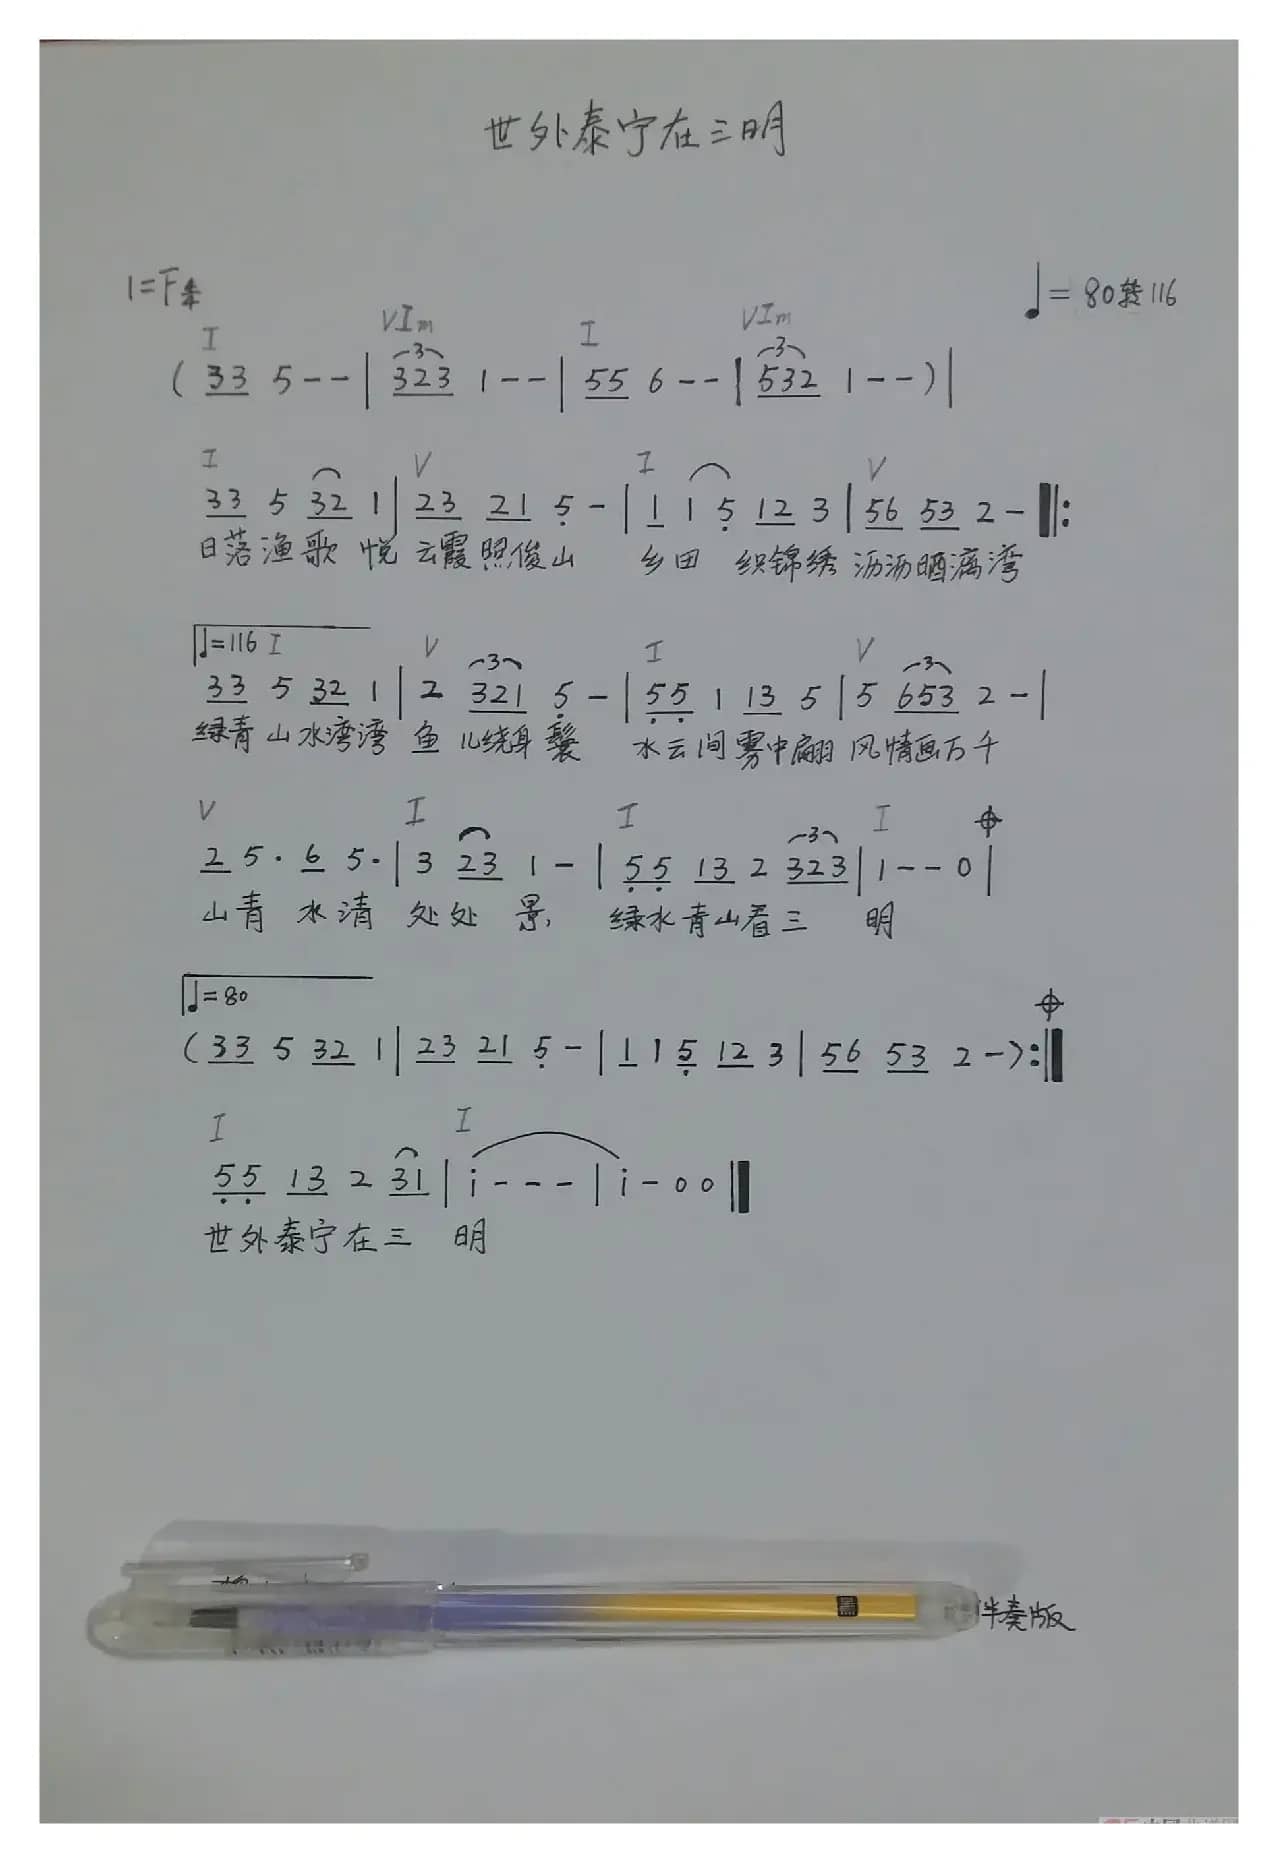 世外泰宁在三明
1=F调 ♩=80转116
I VIm I VIm
( 33 5 - - | 323 1 - - | 55 6 - - | 532 1 - - ) |
I V I V
33 5 32 1 | 23 21 5̣ - | 1 1 5̣ 12 3 | 56 53 2 - ‖:
日落渔歌 悦 云霞照俊山 乡田 织锦绣 沥沥晒漓湾
♩=116 I V I V
33 5 32 1 | 2 321 5̣ - | 5̣5̣ 1 13 5 | 5 653 2 - |
绿青山水湾湾 鱼儿绕身鬟 水云间雾中翩 风情画万千
V I I I
2 5· 6 5· | 3 23 1 - | 5̣5̣ 13 2 323 | 1 - - 0 |
山青 水清 处处 景, 绿水青山看三 明
♩=80
( 33 5 32 1 | 23 21 5̣ - | 1 1 5̣ 12 3 | 56 53 2 - ) :‖
I I
5̣5̣ 13 2 31 | i - - - | i - 0 0 ‖
世外泰宁在三 明
伴奏版